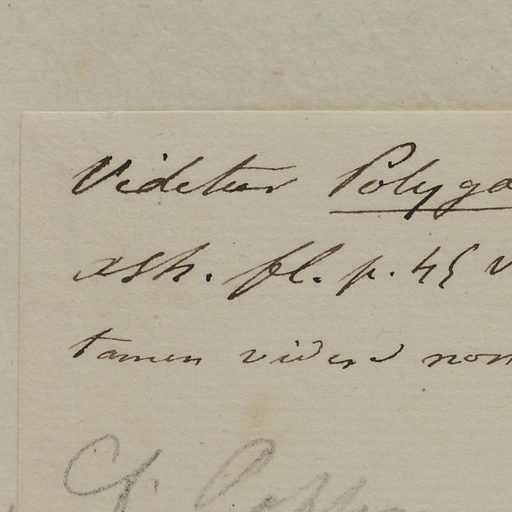 Videtur Polyga
fl. p. 45 v
tamen videre non
Cf.